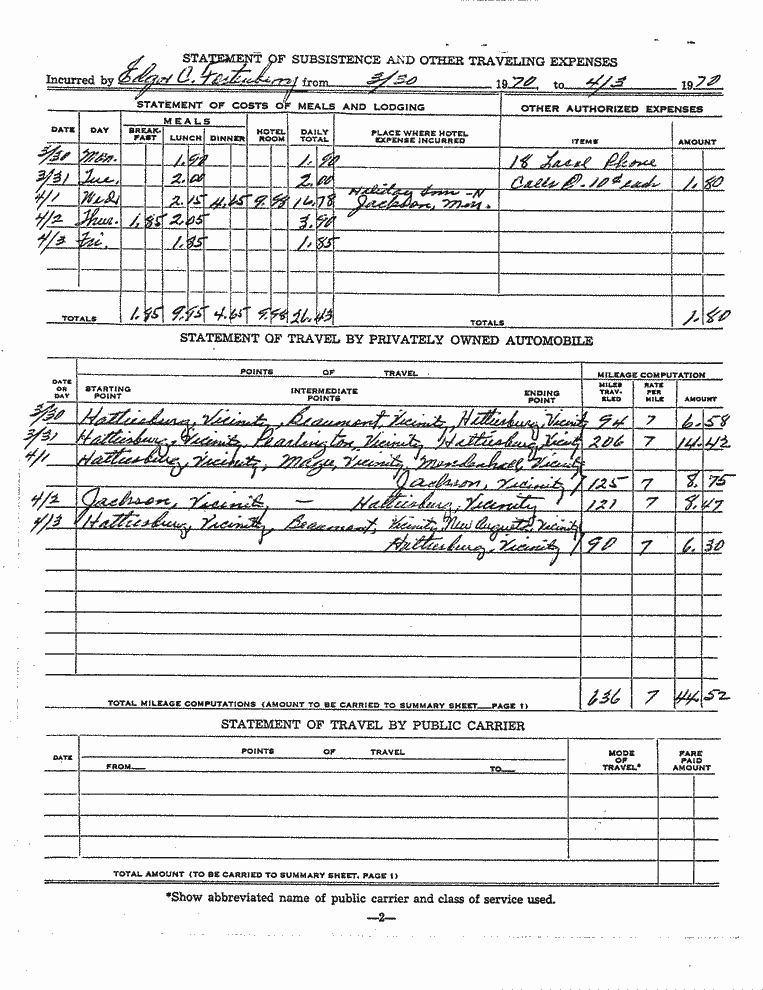 STATEMENT OF SUBSISTENCE AND OTHER TRAVELING EXPENSES
Incurred by Edgar C. from 3/30 1970, to 4/3 1970
STATEMENT OF COSTS OF MEALS AND LODGING OTHER AUTHORIZED EXPENSES
DATE DAY MEALS BREAK-FAST LUNCH DINNER HOTEL ROOM DAILY TOTAL PLACE WHERE HOTEL EXPENSE INCURRED ITEMS AMOUNT
3/30 Mon. 1.90 1.90 18 Local Phone
3/31 Tue. 2.00 2.00 Calls @ .10¢ each 1.80
4/1 Wed. 2.15 4.65 9.98 16.78 Holiday Inn - N Jackson, Miss.
4/2 Thur. 1.85 2.05 3.90
4/3 Fri. 1.85 1.85
TOTALS 1.85 9.95 4.65 9.98 26.43 TOTALS 1.80
STATEMENT OF TRAVEL BY PRIVATELY OWNED AUTOMOBILE
POINTS OF TRAVEL MILEAGE COMPUTATION
DATE OR DAY STARTING POINT INTERMEDIATE POINTS ENDING POINT MILES TRAV-ELED RATE PER MILE AMOUNT
3/30 Hattiesburg, Vicinity, Beaumont, Vicinity, Hattiesburg, Vicinity 94 7 6.58
3/31 Hattiesburg, Vicinity, Pearlington, Vicinity, Hattiesburg, Vicinity 206 7 14.42
4/1 Hattiesburg, Vicinity, Magee, Vicinity, Mendenhall, Vicinity
Jackson, Vicinity / 125 7 8.75
4/2 Jackson, Vicinity, — Hattiesburg, Vicinity 121 7 8.47
4/3 Hattiesburg, Vicinity, Beaumont, Vicinity, New Augusta, Vicinity
Hattiesburg, Vicinity / 90 7 6.30
TOTAL MILEAGE COMPUTATIONS (AMOUNT TO BE CARRIED TO SUMMARY SHEET PAGE 1) 636 7 44.52
STATEMENT OF TRAVEL BY PUBLIC CARRIER
DATE POINTS OF TRAVEL MODE OF TRAVEL* FARE PAID AMOUNT
FROM TO
TOTAL AMOUNT (TO BE CARRIED TO SUMMARY SHEET, PAGE 1)
*Show abbreviated name of public carrier and class of service used.
—2—